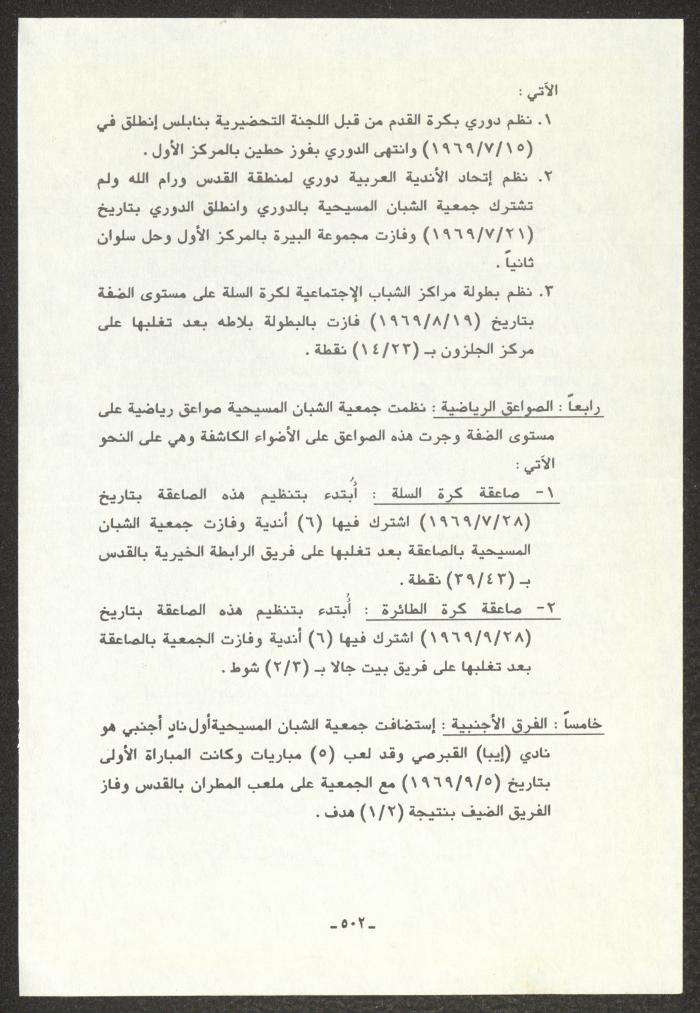 الآتي :
١. نظم دوري بكرة القدم من قبل اللجنة التحضيرية بنابلس إنطلق في
(١٩٦٩/٧/١٥) وانتهى الدوري بفوز حطين بالمركز الأول .
٢. نظم إتحاد الأندية العربية دوري لمنطقة القدس ورام الله ولم
تشترك جمعية الشبان المسيحية بالدوري وانطلق الدوري بتاريخ
(١٩٦٩/٧/٢١) وفازت مجموعة البيرة بالمركز الأول وحل سلوان
ثانياً .
٣. نظم بطولة مراكز الشباب الإجتماعية لكرة السلة على مستوى الضفة
بتاريخ (١٩٦٩/٨/١٩) فازت بالبطولة بلاطه بعد تغلبها على
مركز الجلزون بـ (١٤/٢٣) نقطة .
رابعاً : الصواعق الرياضية : نظمت جمعية الشبان المسيحية صواعق رياضية على
مستوى الضفة وجرت هذه الصواعق على الأضواء الكاشفة وهي على النحو
الآتي :
١- صاعقة كرة السلة : أُبتدء بتنظيم هذه الصاعقة بتاريخ
(١٩٦٩/٧/٢٨) اشترك فيها (٦) أندية وفازت جمعية الشبان
المسيحية بالصاعقة بعد تغلبها على فريق الرابطة الخيرية بالقدس
بـ (٣٩/٤٣) نقطة .
٢- صاعقة كرة الطائرة : أُبتدء بتنظيم هذه الصاعقة بتاريخ
(١٩٦٩/٩/٢٨) اشترك فيها (٦) أندية وفازت الجمعية بالصاعقة
بعد تغلبها على فريق بيت جالا بـ (٢/٣) شوط .
خامساً : الفرق الأجنبية : إستضافت جمعية الشبان المسيحيةأول نادٍ أجنبي هو
نادي (إيبا) القبرصي وقد لعب (٥) مباريات وكانت المباراة الأولى
بتاريخ (١٩٦٩/٩/٥) مع الجمعية على ملعب المطران بالقدس وفاز
الفريق الضيف بنتيجة (١/٢) هدف .
ـ ٥٠٢ ـ